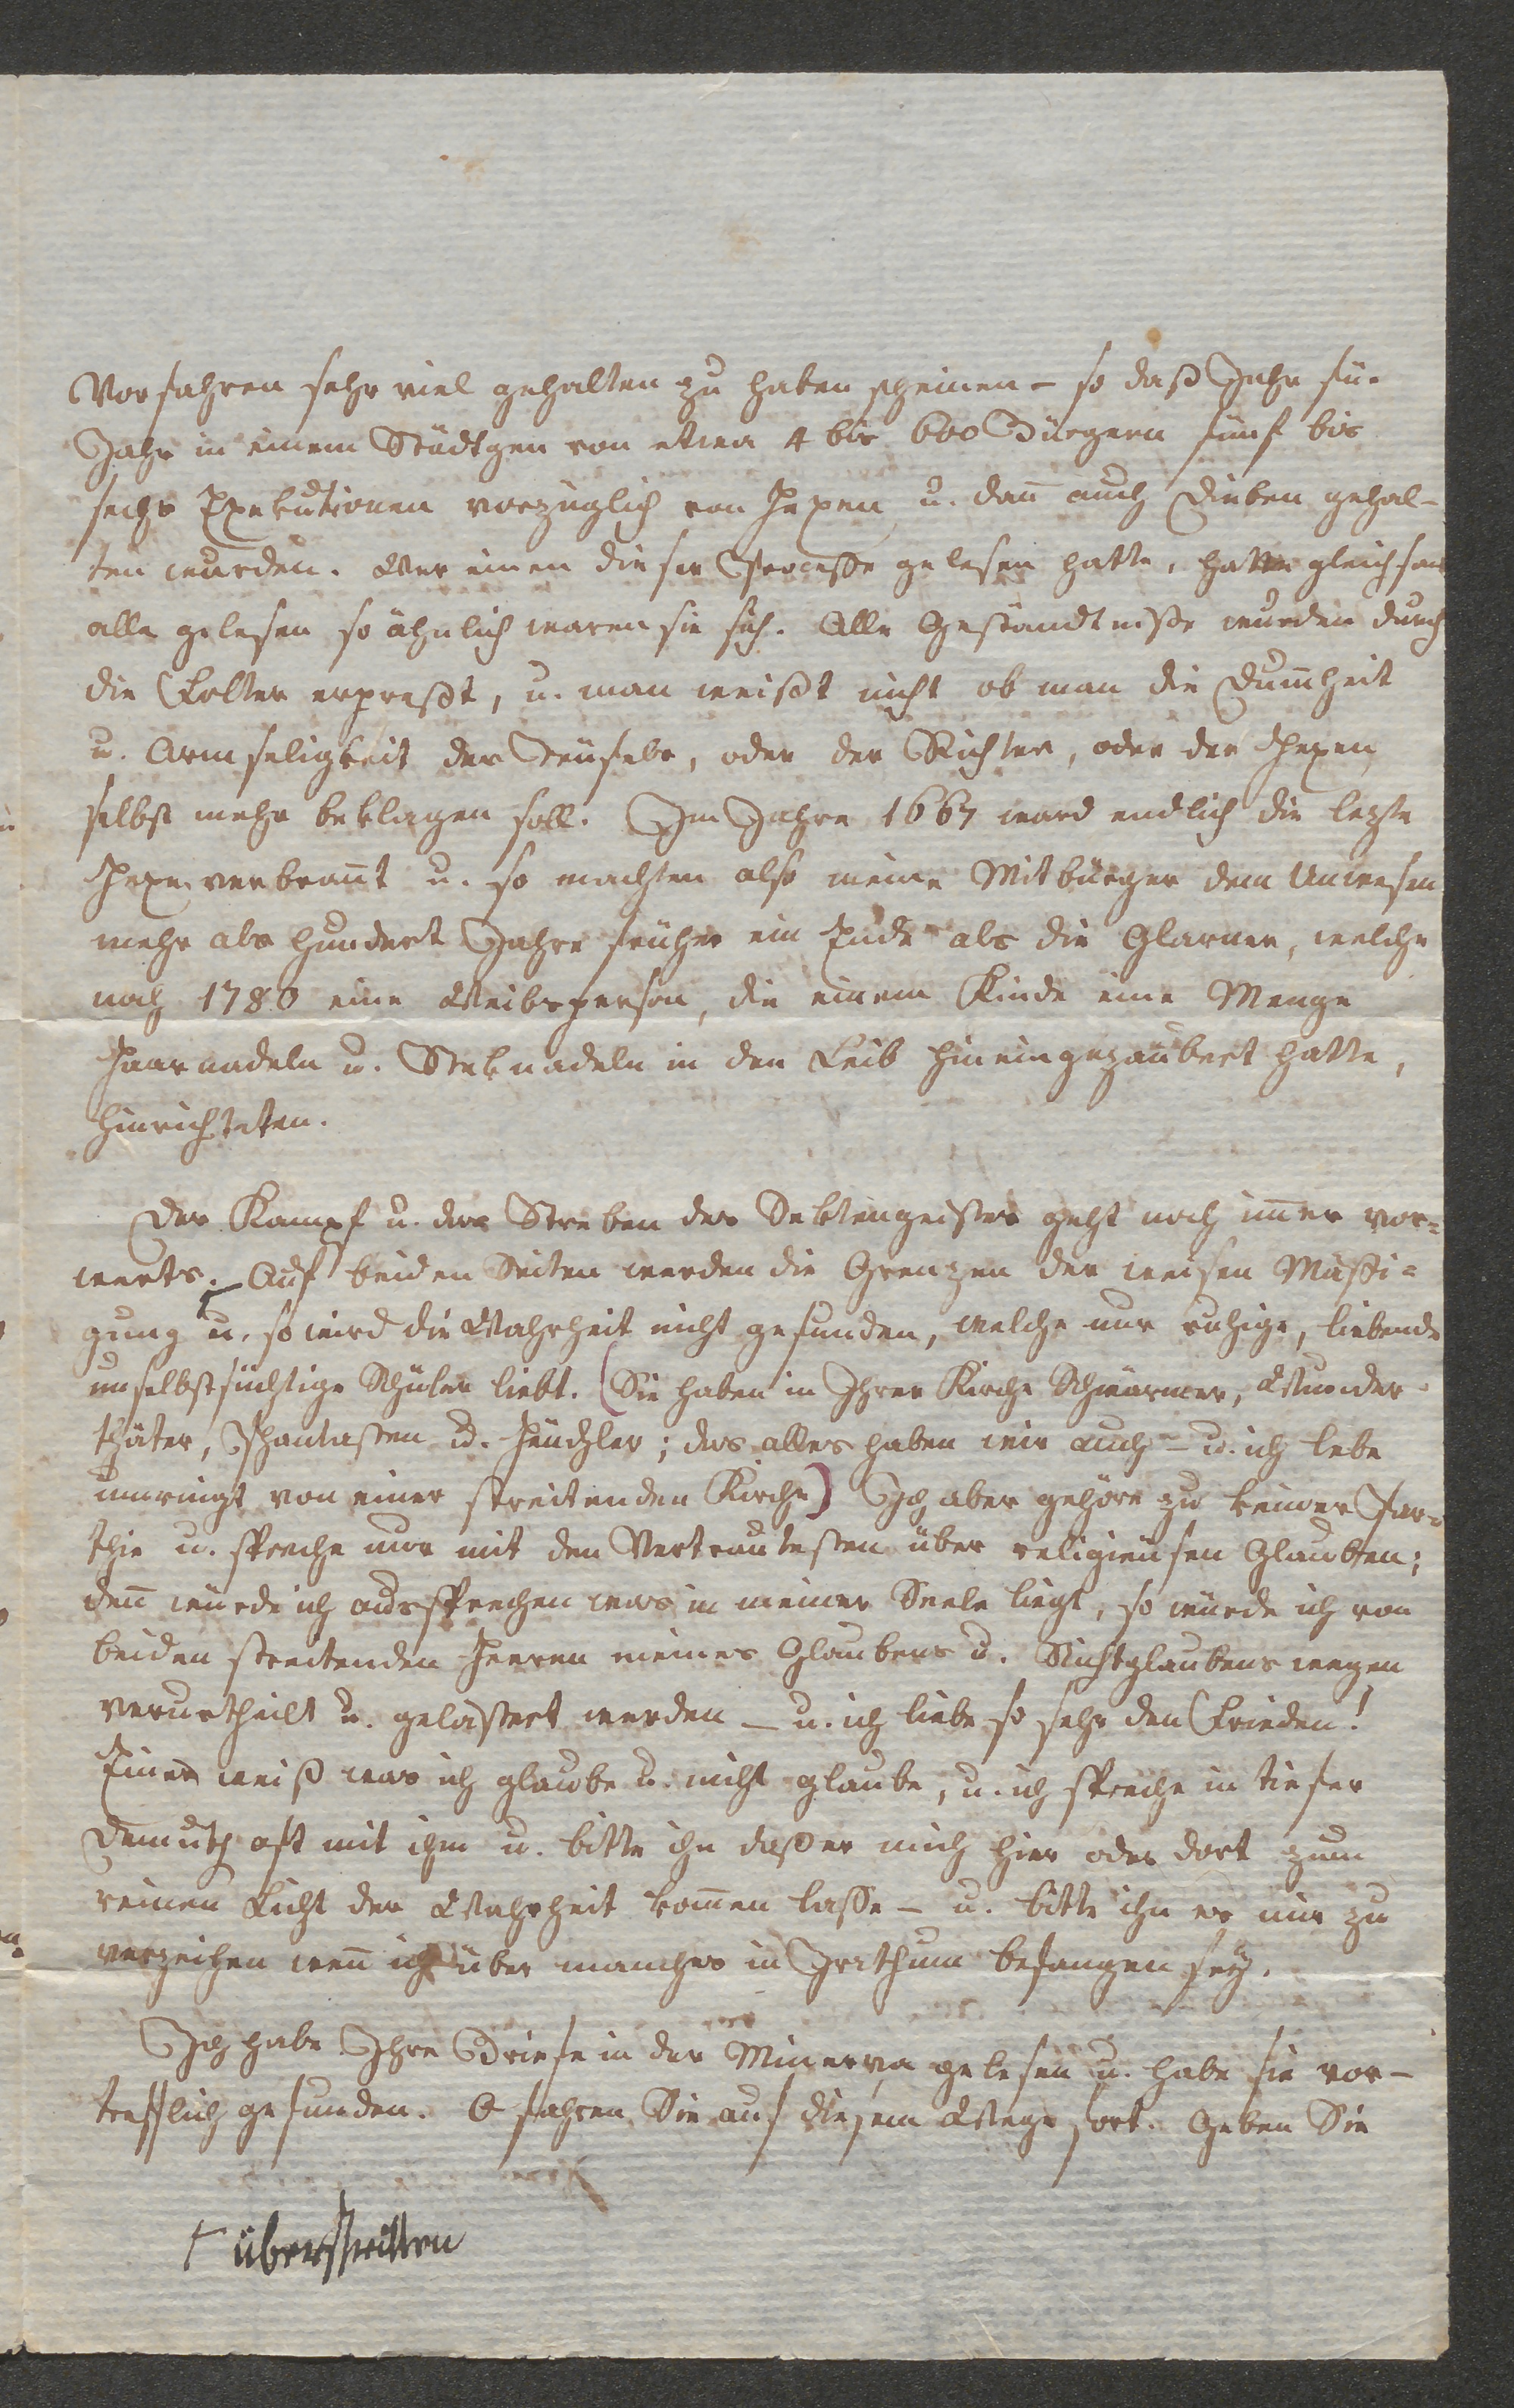 Vorfahren sehr viel gehalten zu haben scheinen – so daß Jahr für
Jahr in einem Städtgen von etwa 4 bis 600 Bürgern fünf bis
sechs Exekutionen vorzüglich von Hexen u. dañ auch Dieben gehal-
ten wurden. Wer einen dieser Processe gelesen hatte, hatte gleichsam
alle gelesen so ähnlich waren sie sich. Alle Geständtniße wurden durch
die Folter erpreßt, u. man weißt nicht ob man die Dum̃heit
u. Armseligkeit des Teufels, oder der Richter, oder der Hexen
selbst mehr beklagen soll. Im Jahre 1667 ward endlich die lezte
Hexe verbrañt u. so machten also meine Mitbürger dem Unwesen
mehr als hundert Jahre früher ein Ende als die Glarner, welche
noch 1780 eine Weibsperson, die einem Kinde eine Menge
Haarnadeln u. Steknadeln in den Leib hineingezaubert hatte,
hinrichteten.
Der Kampf u. das Streben des Sektengeistes geht noch im̃er vor-
werts. Auf beiden Seiten werden die Grenzen der weisen Mässi-
gung ⌈ u. so wird die Wahrheit nicht gefunden, welche nur ruhige, liebende
unselbstsüchtige Schüler liebt. (Sie haben in Ihrer Kirche Schwärmer, Wunder-
thäter, Phantasten u. Heuchler; das alles haben wir auch – u. ich lebe
umringt von einer streitenden Kirche) Ich aber gehöre zu keiner Par-
thie u. spreche nur mit den Vertrautesten über religieusen Glauben;
deñ würde ich aussprechen was in meiner Seele liegt, so würde ich von
beiden streitenden Heeren meines Glaubens u. Nichtglaubens wegen
verurtheilt u. gelästert werden – u. ich liebe so sehr den Frieden!
Einer weiß was ich glaube u. nicht glaube, u. ich spreche in tiefer
Demuth oft mit ihm u. bitte ihn daß er mich hier oder dort zum
reinen Licht der Wahrheit kom̃en lasse – u. bitte ihn es mir zu
verzeihen weñ ich über manches in Irrthum befangen sey.
Ich habe Ihre Briefe in der Minerva gelesen u. habe sie vor-
trefflich gefunden. O fahren Sie auf diesem Wege fort. Geben Sie
⌈ überschritten